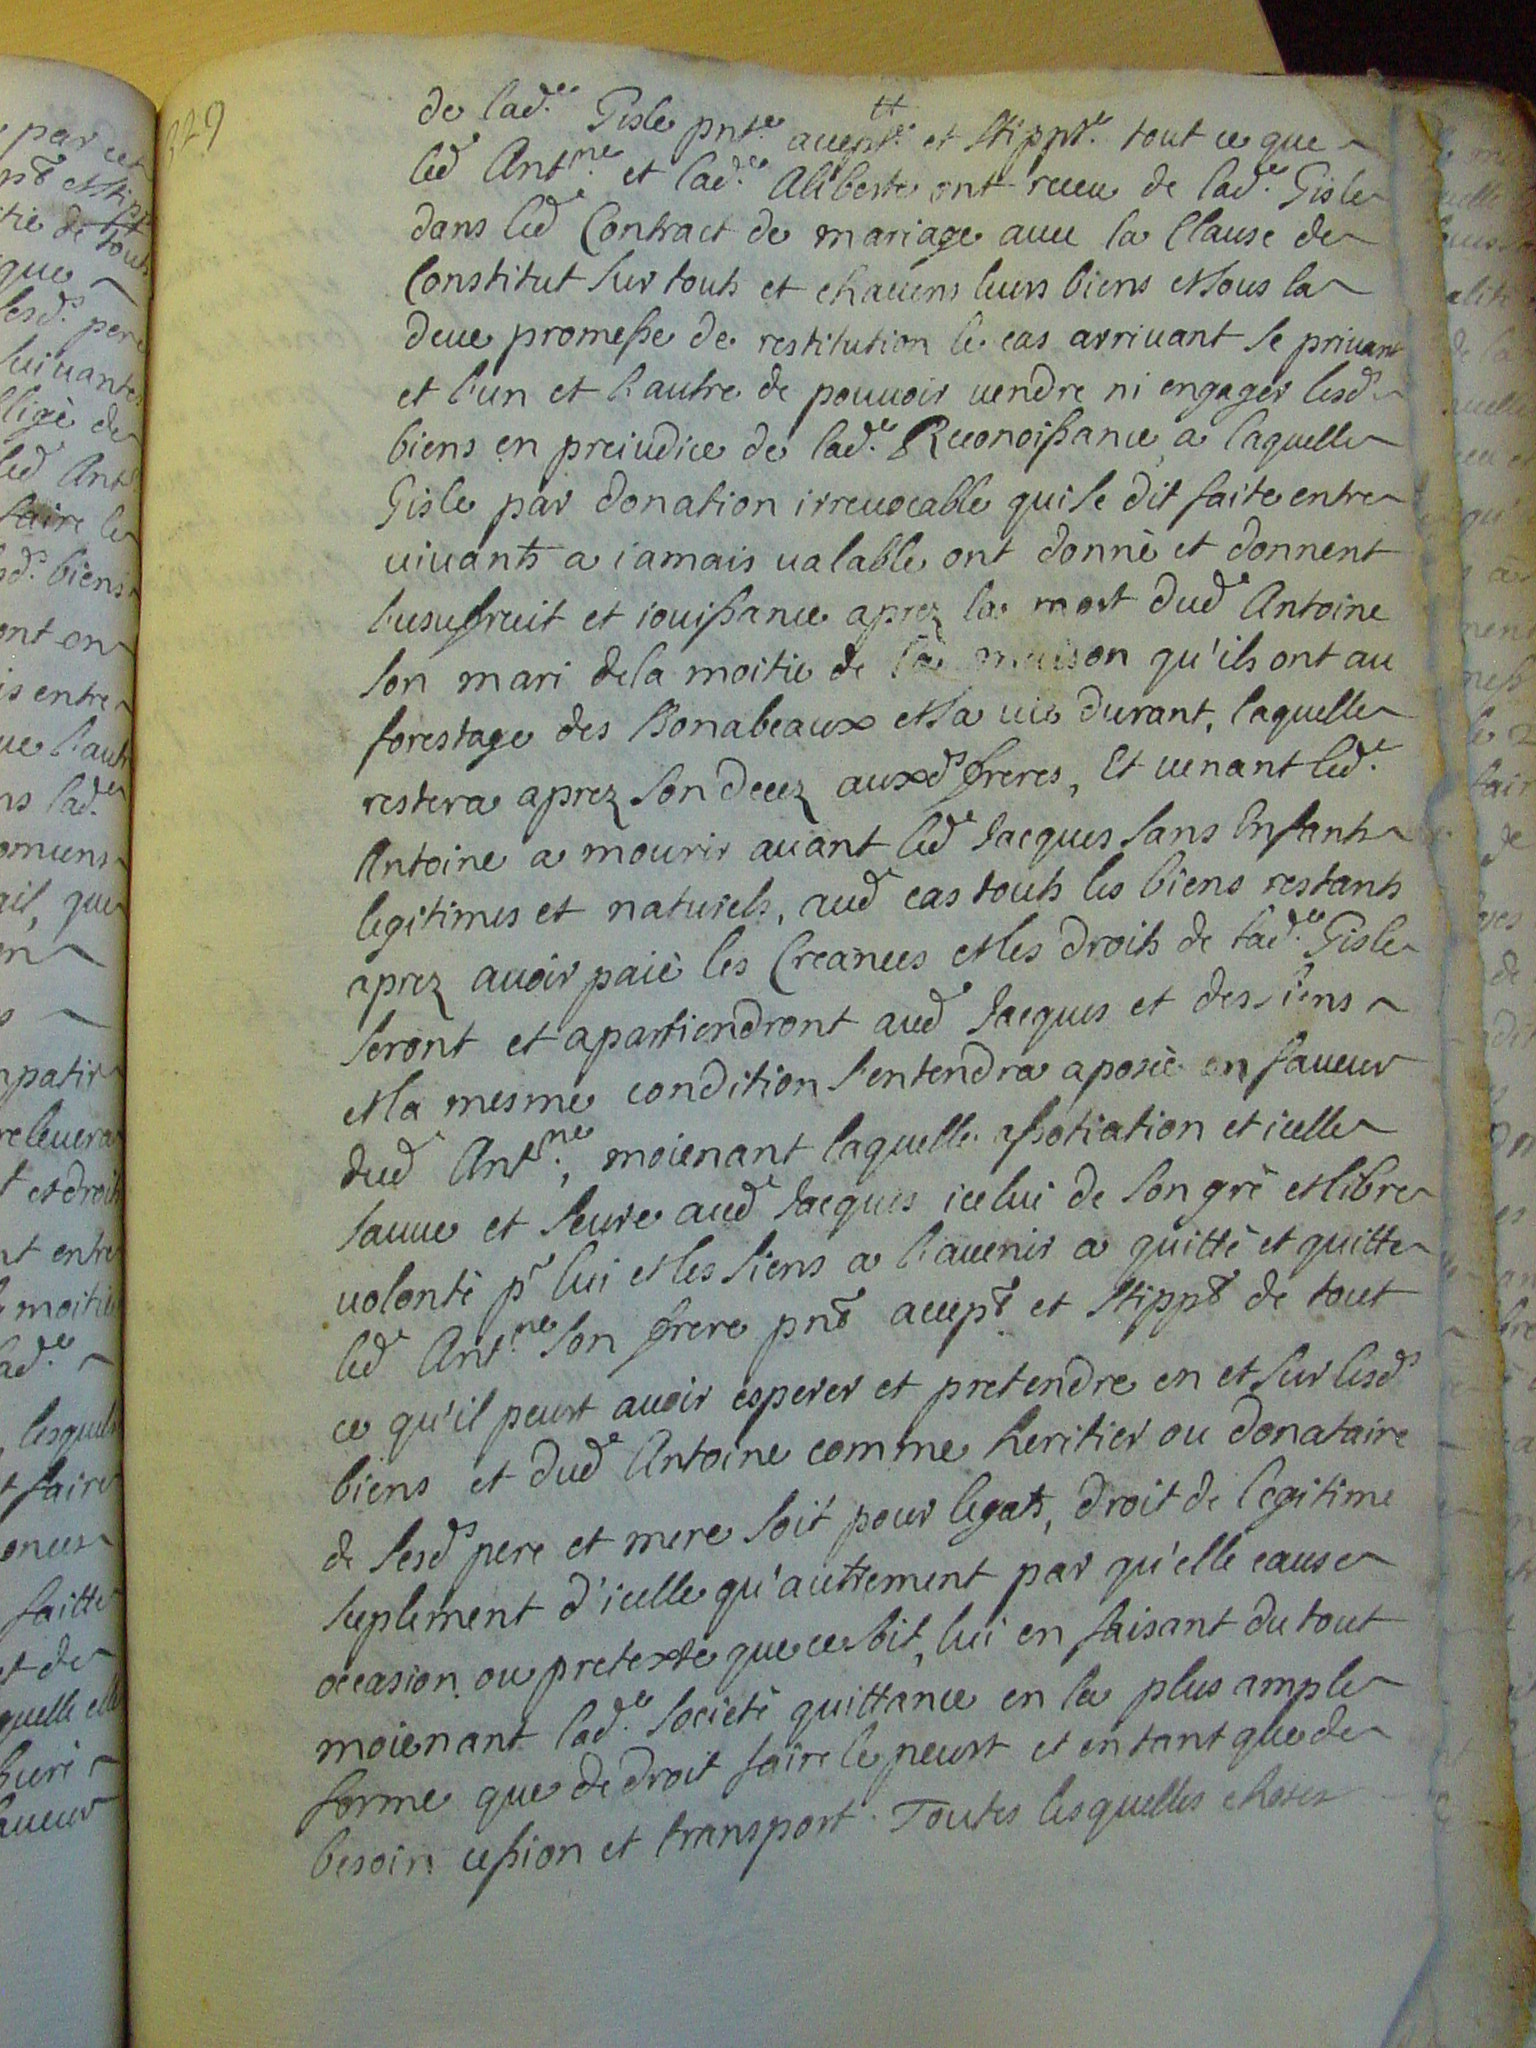 329
de lad.e Gisle pnte. accepte. et stippte. tout ce que
led Antne. et lad.e Aliberte ont receu de lad.e Gisle
dans led Contract de mariage avec la Clause de
Constitut sur touts et chacuns leurs biens et sous la
deue promesse de restitution le cas arrivant se privant
et l'un et l'autre de pouvoir vendre ni engager lesd
biens en preiudice de lad.e Reconoissance, a laquelle
Gisle par donation irrevocable qui se dit faite entre
vivants a iamais valable ont donnè et donnent
l'usufruit et iouissance aprez la mort dud Antoine
son mari de la moitie de la maison qu'ils ont au
forestage des Bonabeaux et sa vie durant, laquelle
restera aprez son decez auxds freres, Et venant led.
Antoine a mourir avant led Jacques sans Enfants
legitimes et naturels, aud cas touts les biens restants
aprez avoir paiè les Creances et les droits de lad.e Gisle
seront et apartiendront aud Jacques et des siens
et la mesme condition s'entendra aposèe en faveur
dud Antne., moienant laquelle assotiation et icelle
sauve et seure aud Jacques icelui de son grè et libre
volontè pr lui et les siens a l'avenir a quittè et quitte
led Antne son frere pnt accept et stippt de tout
ce qu'il peust avoir esperer et pretendre en et sur lesd
biens et dud Antoine comme heritier ou donataire
de sesd pere et mere soit pour legats, droit de legitime
suplement d'icelle qu'autrement par qu'elle cause
occasion ou pretexte que ce soit, lui en faisant du tout
moienant lad.e societè quittance en la plus ample
forme que de droit faire le peust et en tant que de
besoin cession et transport. Toutes lesquelles choses